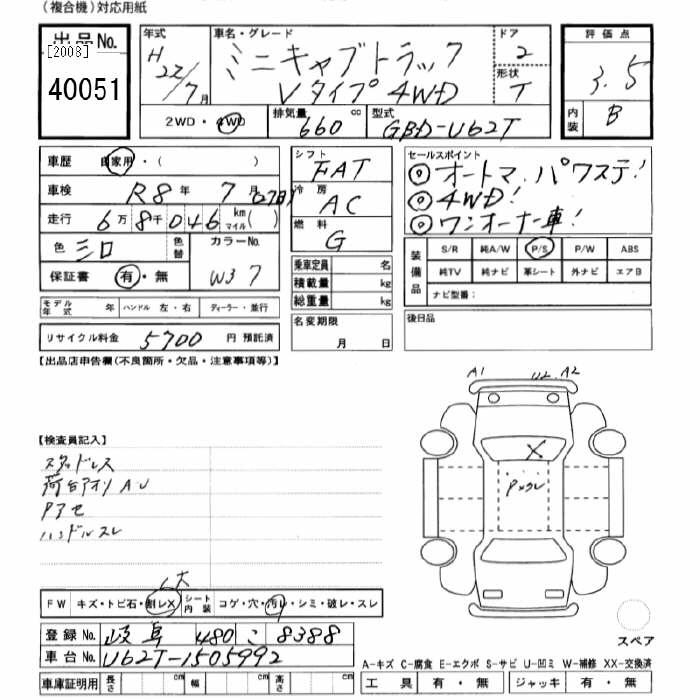 (複合機)対応用紙
出品No. [2008] 40051
年式 H 22/7月
車名・グレード ミニキャブトラック Vタイプ 4WD
ドア 2
形状 T
評価点 3.5
内装 B
2WD・4WD 排気量 660 cc 型式 GBD-U62T
車歴 自家用・( )
車検 R8年 7月(27日)
走行 6万8千046 km マイル( )
色 シロ 色替 カラーNo. W37
保証書 有・無
モデル年式 年 ハンドル 左・右 ディーラー・並行
リサイクル料金 5700 円 預託済
シフト FAT
冷房 AC
燃料 G
乗車定員 名
積載量 kg
総重量 kg
名変期限 月 日
セールスポイント
◎オートマ、パワステ!
◎4WD!
◎ワンオーナー車!
装備品 S/R 純A/W P/S P/W ABS
純TV 純ナビ 革シート 外ナビ エアB
ナビ型番:
後日品
【出品店申告欄(不良箇所・欠品・注意事項等)】
A1 U2 A2
X
【検査員記入】
スタッドレス
荷台アオリAU
Pアセ
ハンドルスレ
大
FW キズ・トビ石・割レX シート内装 コゲ・穴・汚レ・シミ・破レ・スレ
登録No. 岐阜 480 こ 8388
車台No. U62T-1505992
車庫証明用 長さ cm 幅 cm 高さ cm
スペア
A-キズ C-腐食 E-エクボ S-サビ U-凹ミ W-補修 XX-交換済
工具 有・無 ジャッキ 有・無